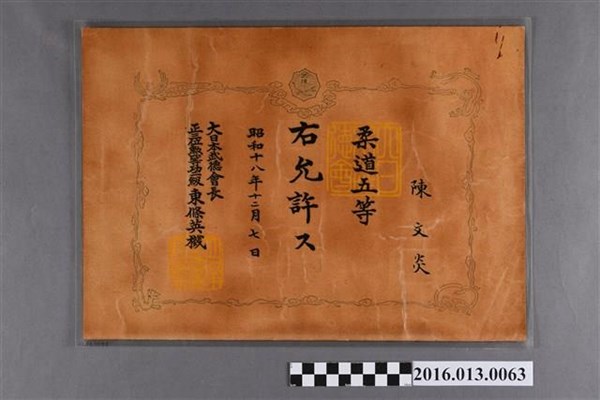 陳文炎
柔道五等
右允許ス
昭和十八年十二月七日
大日本武德會長
正三位勳一等功二級東條英機
2016.013.0063